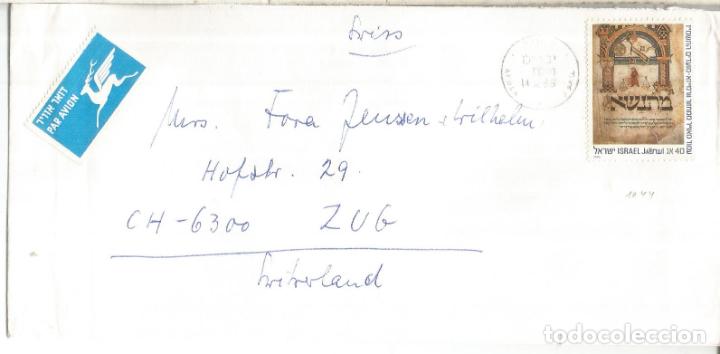 Swiss
דואר אויר
PAR AVION
Mrs. Fora Jenssen-Wilhelm
Hofstr. 29
CH-6300 ZUG
Switzerland
מתנשא
ישראל ISRAEL اسرائيل
40 אג
1044
todocoleccion